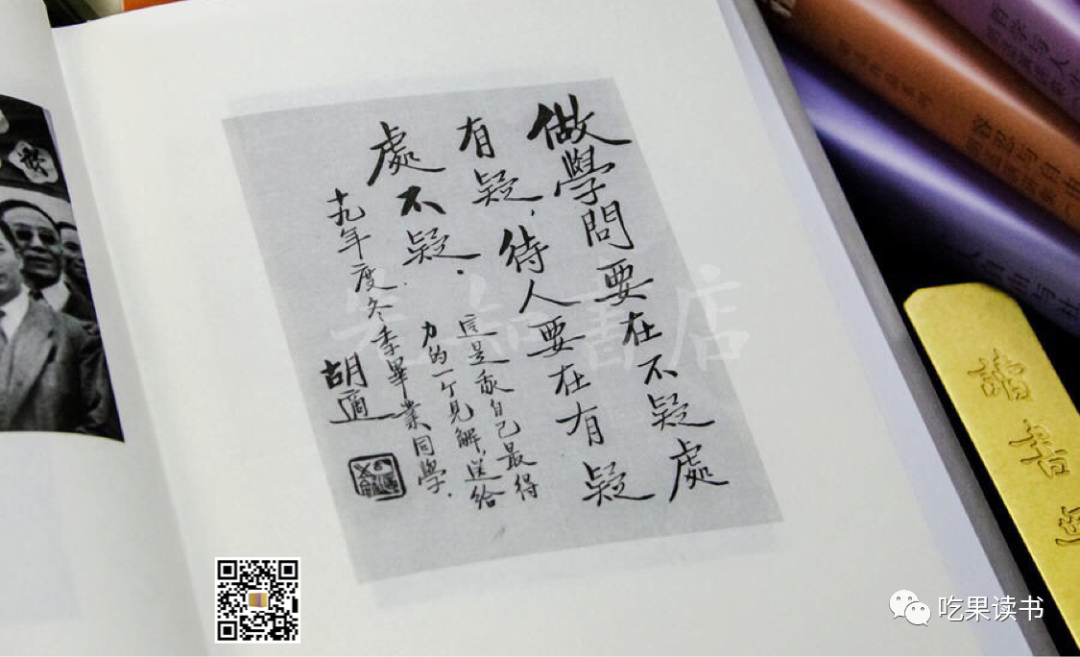 做學問要在不疑處
有疑，待人要在有疑
處不疑．
這是我自己最得
力的一个見解，送给
十九年度冬季畢業同學．
胡適
先知書店
容忍与自由
吃果读书